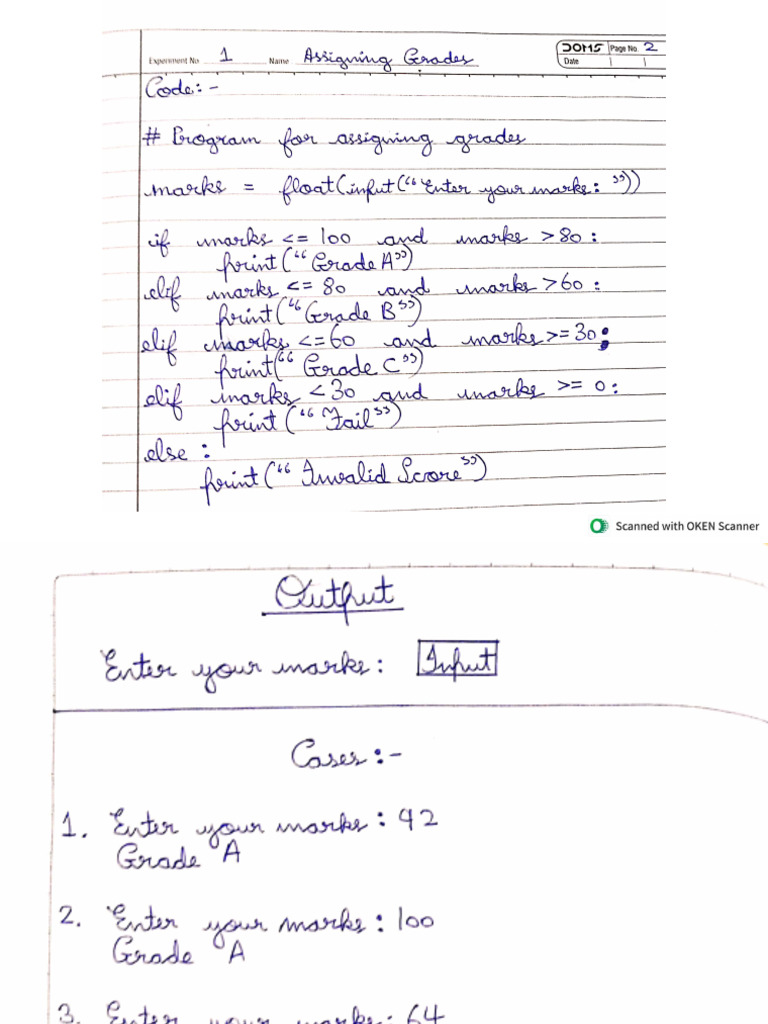 Experiment No. 1 Name Assigning Grades DOMS Page No. 2
Date
Code:-
# Program for assigning grades
marks = float(input(“Enter your marks: ”))
if marks <= 100 and marks > 80:
print(“Grade A”)
elif marks <= 80 and marks > 60:
print(“Grade B”)
elif marks <= 60 and marks >= 30:
print(“Grade C”)
elif marks < 30 and marks >= 0:
print(“Fail”)
else:
print(“Invalid Score”)
Scanned with OKEN Scanner
Output
Enter your marks: Input
Cases:-
1. Enter your marks: 92
Grade A
2. Enter your marks: 100
Grade A
3. Enter your marks: 64